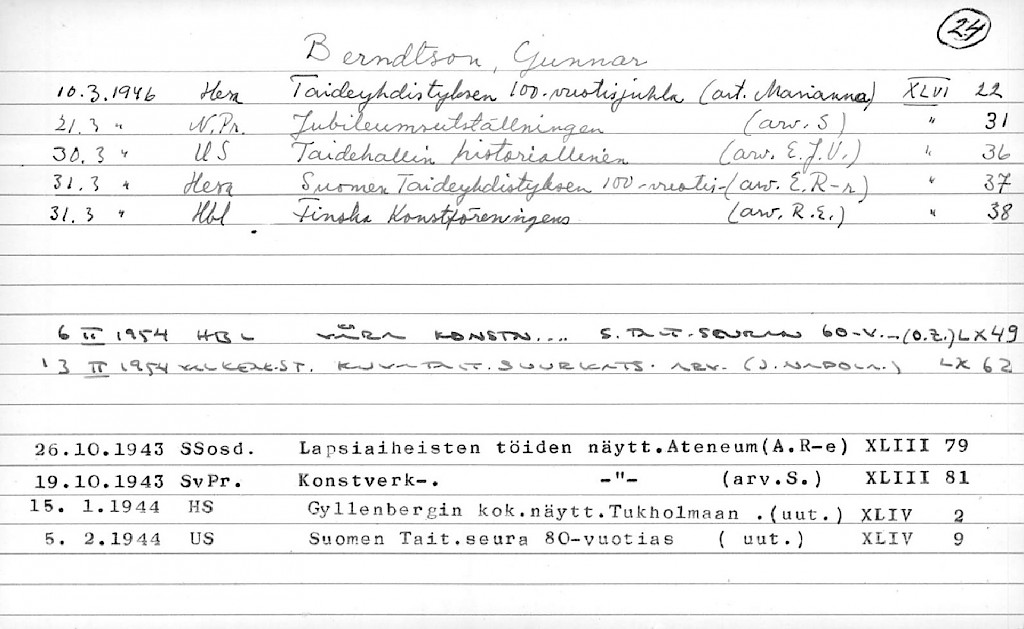 24
Berndtson, Gunnar
10.3.1946 Hesa Taideyhdistyksen 100-vuotisjuhla (art. Marianna) XLVI 22
21.3 " N.Pr. Jubileumsutställningen (arv. S) " 31
30.3 " US Taidehallin historiallinen (arv. E.J.V.) " 36
31.3 " Hesa Suomen Taideyhdistyksen 100-vuotis-(arv. E.R-r) " 37
31.3 " Hbl Finska Konstföreningens (arv. R.E.) " 38
6 II 1954 HBL VÅRA KONSTN.... S.TAIT.SEURAN 60-V.-(O.Z.) LX 49
13 II 1954 KUVATAIT. SUURKATS. ARV. LX 62
26.10.1943 SSosd. Lapsiaiheisten töiden näytt.Ateneum(A.R-e) XLIII 79
19.10.1943 SvPr. Konstverk-. -"- (arv.S.) XLIII 81
15. 1.1944 HS Gyllenbergin kok.näytt.Tukholmaan .(uut.) XLIV 2
5. 2.1944 US Suomen Tait.seura 80-vuotias ( uut.) XLIV 9